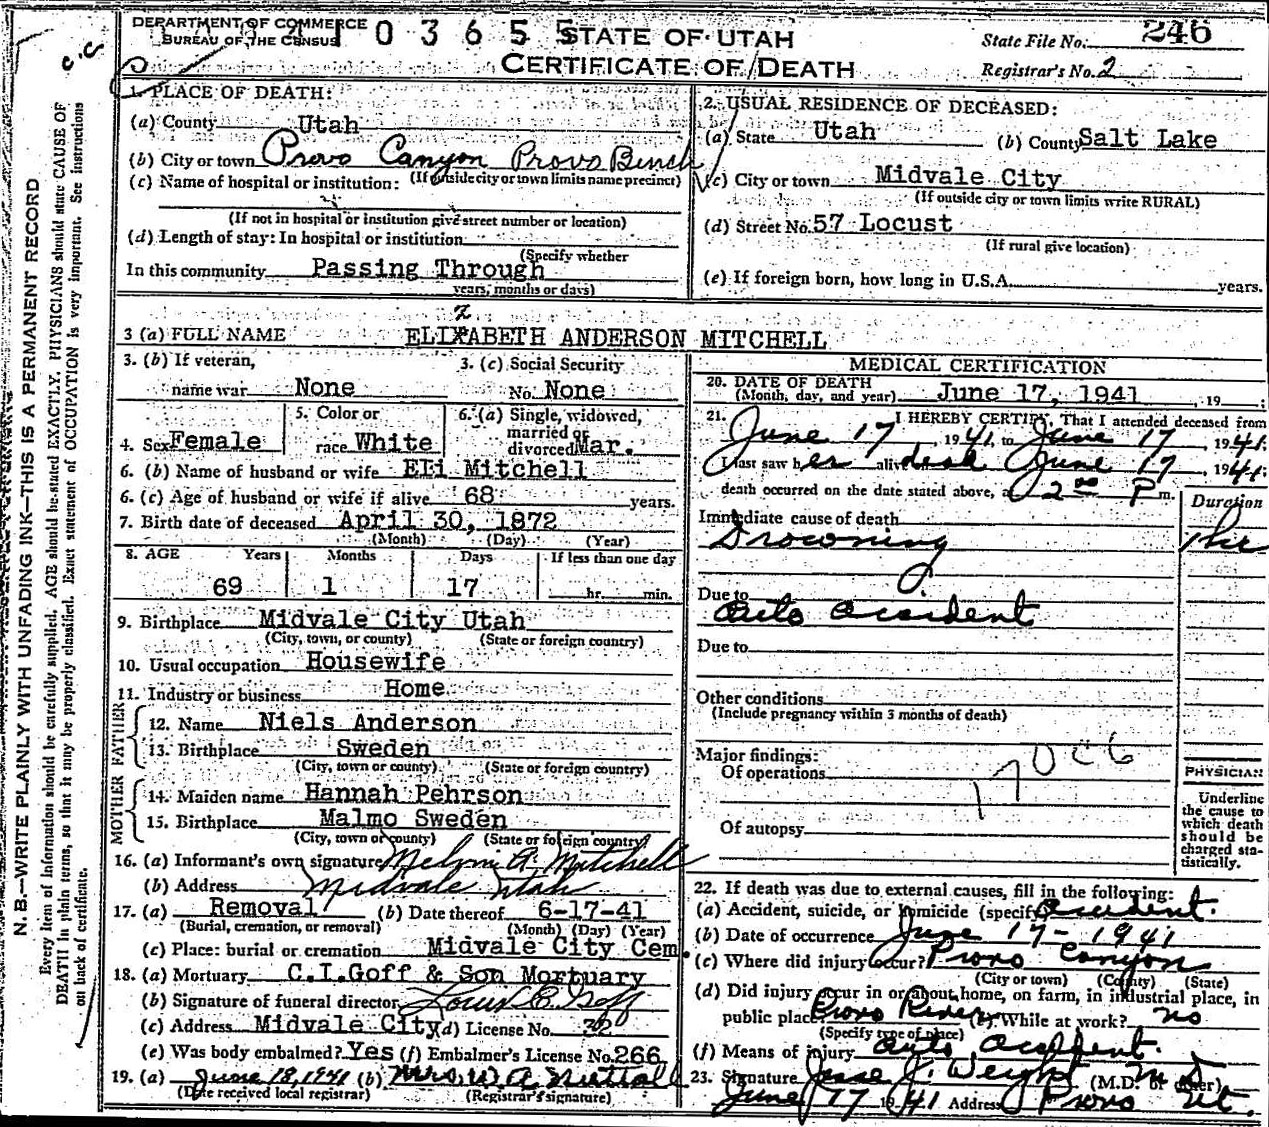 DEPARTMENT OF COMMERCE
BUREAU OF THE CENSUS
03655
STATE OF UTAH
CERTIFICATE OF DEATH
State File No. 246
Registrar's No. 2
c.c
N. B.—WRITE PLAINLY WITH UNFADING INK—THIS IS A PERMANENT RECORD
Every item of information should be carefully supplied. AGE should be stated EXACTLY. PHYSICIANS should state CAUSE OF
DEATH in plain terms, so that it may be properly classified. Exact statement of OCCUPATION is very important. See instructions
on back of certificate.
1. PLACE OF DEATH:
(a) County Utah
(b) City or town Provo Canyon Provo Bench
(If outside city or town limits name precinct)
(c) Name of hospital or institution:
(If not in hospital or institution give street number or location)
(d) Length of stay: In hospital or institution
(Specify whether
In this community Passing Through
years, months or days)
2. USUAL RESIDENCE OF DECEASED:
(a) State Utah (b) County Salt Lake
(c) City or town Midvale City
(If outside city or town limits write RURAL)
(d) Street No. 57 Locust
(If rural give location)
(e) If foreign born, how long in U.S.A. years.
3 (a) FULL NAME ELIZABETH ANDERSON MITCHELL
3. (b) If veteran,
name war None
3. (c) Social Security
No. None
4. Sex Female
5. Color or
race White
6. (a) Single, widowed,
married or
divorced Mar.
6. (b) Name of husband or wife Eli Mitchell
6. (c) Age of husband or wife if alive 68 years.
7. Birth date of deceased April 30, 1872
(Month) (Day) (Year)
8. AGE Years Months Days If less than one day
69 1 17 hr. min.
9. Birthplace Midvale City Utah
(City, town, or county) (State or foreign country)
10. Usual occupation Housewife
11. Industry or business Home
FATHER
12. Name Niels Anderson
13. Birthplace Sweden
(City, town or county) (State or foreign country)
MOTHER
14. Maiden name Hannah Pehrson
15. Birthplace Malmo Sweden
(City, town or county) (State or foreign country)
16. (a) Informant's own signature Melvin A. Mitchell
(b) Address Midvale Utah
17. (a) Removal (b) Date thereof 6-17-41
(Burial, cremation, or removal) (Month) (Day) (Year)
(c) Place: burial or cremation Midvale City Cem.
18. (a) Mortuary C.I.Goff & Son Mortuary
(b) Signature of funeral director Louis C. Goff
(c) Address Midvale City (d) License No. 32
(e) Was body embalmed? Yes (f) Embalmer's License No. 266
19. (a) June 18, 1941 (b) Mrs. W A Nuttall
(Date received local registrar) (Registrar's signature)
MEDICAL CERTIFICATION
20. DATE OF DEATH
(Month, day, and year) June 17, 1941, 19
21. I HEREBY CERTIFY, That I attended deceased from
June 17, 1941 to June 17, 1941
I last saw her alive dead June 17, 1941;
death occurred on the date stated above, at 2 00 P m.
Duration
Immediate cause of death
Drowning
Due to
Auto accident
Due to
Other conditions
(Include pregnancy within 3 months of death)
Major findings:
Of operations
Of autopsy
PHYSICIAN
Underline
the cause to
which death
should be
charged sta-
tistically.
22. If death was due to external causes, fill in the following:
(a) Accident, suicide, or homicide (specify) accident.
(b) Date of occurrence June 17 - 1941
(c) Where did injury occur? Provo Canyon
(City or town) (County) (State)
(d) Did injury occur in or about home, on farm, in industrial place, in
public place Provo River (e) While at work? no
(Specify type of place)
(f) Means of injury auto accident.
23. Signature Jesse J. Weight M D (M.D. or other)
June 17 1941 Address Provo Ut.